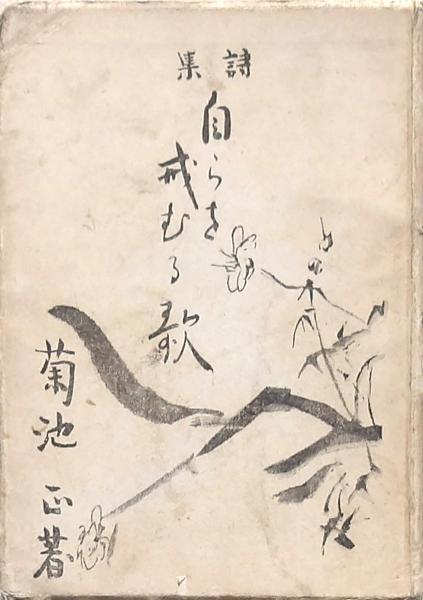 詩集
自らを
戒むる歌
菊池正著